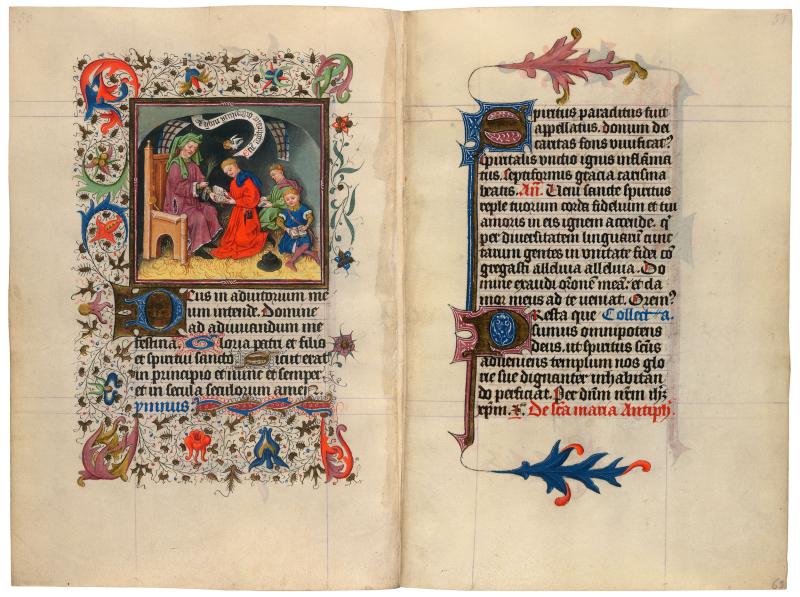 Deus in adiutorium me
um intende. Domine
ad adiuvandum me
festina. Gloria patri et filio
et spiritui sancto Sicut erat
in principio et nunc et semper
et in secula seculorum amen
ymnus
Spiritus paraclitus fuit
appellatus. donum dei
caritas fons vivificat
Spiritalis unctio ignis inflama
tus. septiformis gracia carisma
beatis. An. Veni sancte spiritus
reple tuorum corda fidelium et tui
amoris in eis ignem accende. q
per diversitatem linguarum cunc
tarum gentes in unitate fidei co
gregasti alleluia alleluia. Do
mine exaudi oronem mea. et cla
mor meus ad te veniat. Orem
Presta que Collecta.
sumus omnipotens
deus. ut spiritus scus
adveniens templum nos glo
rie sue dignanter inhabitan
do perficiat. Per dnm nrm ihm
xpm. De sca maria Antiph.